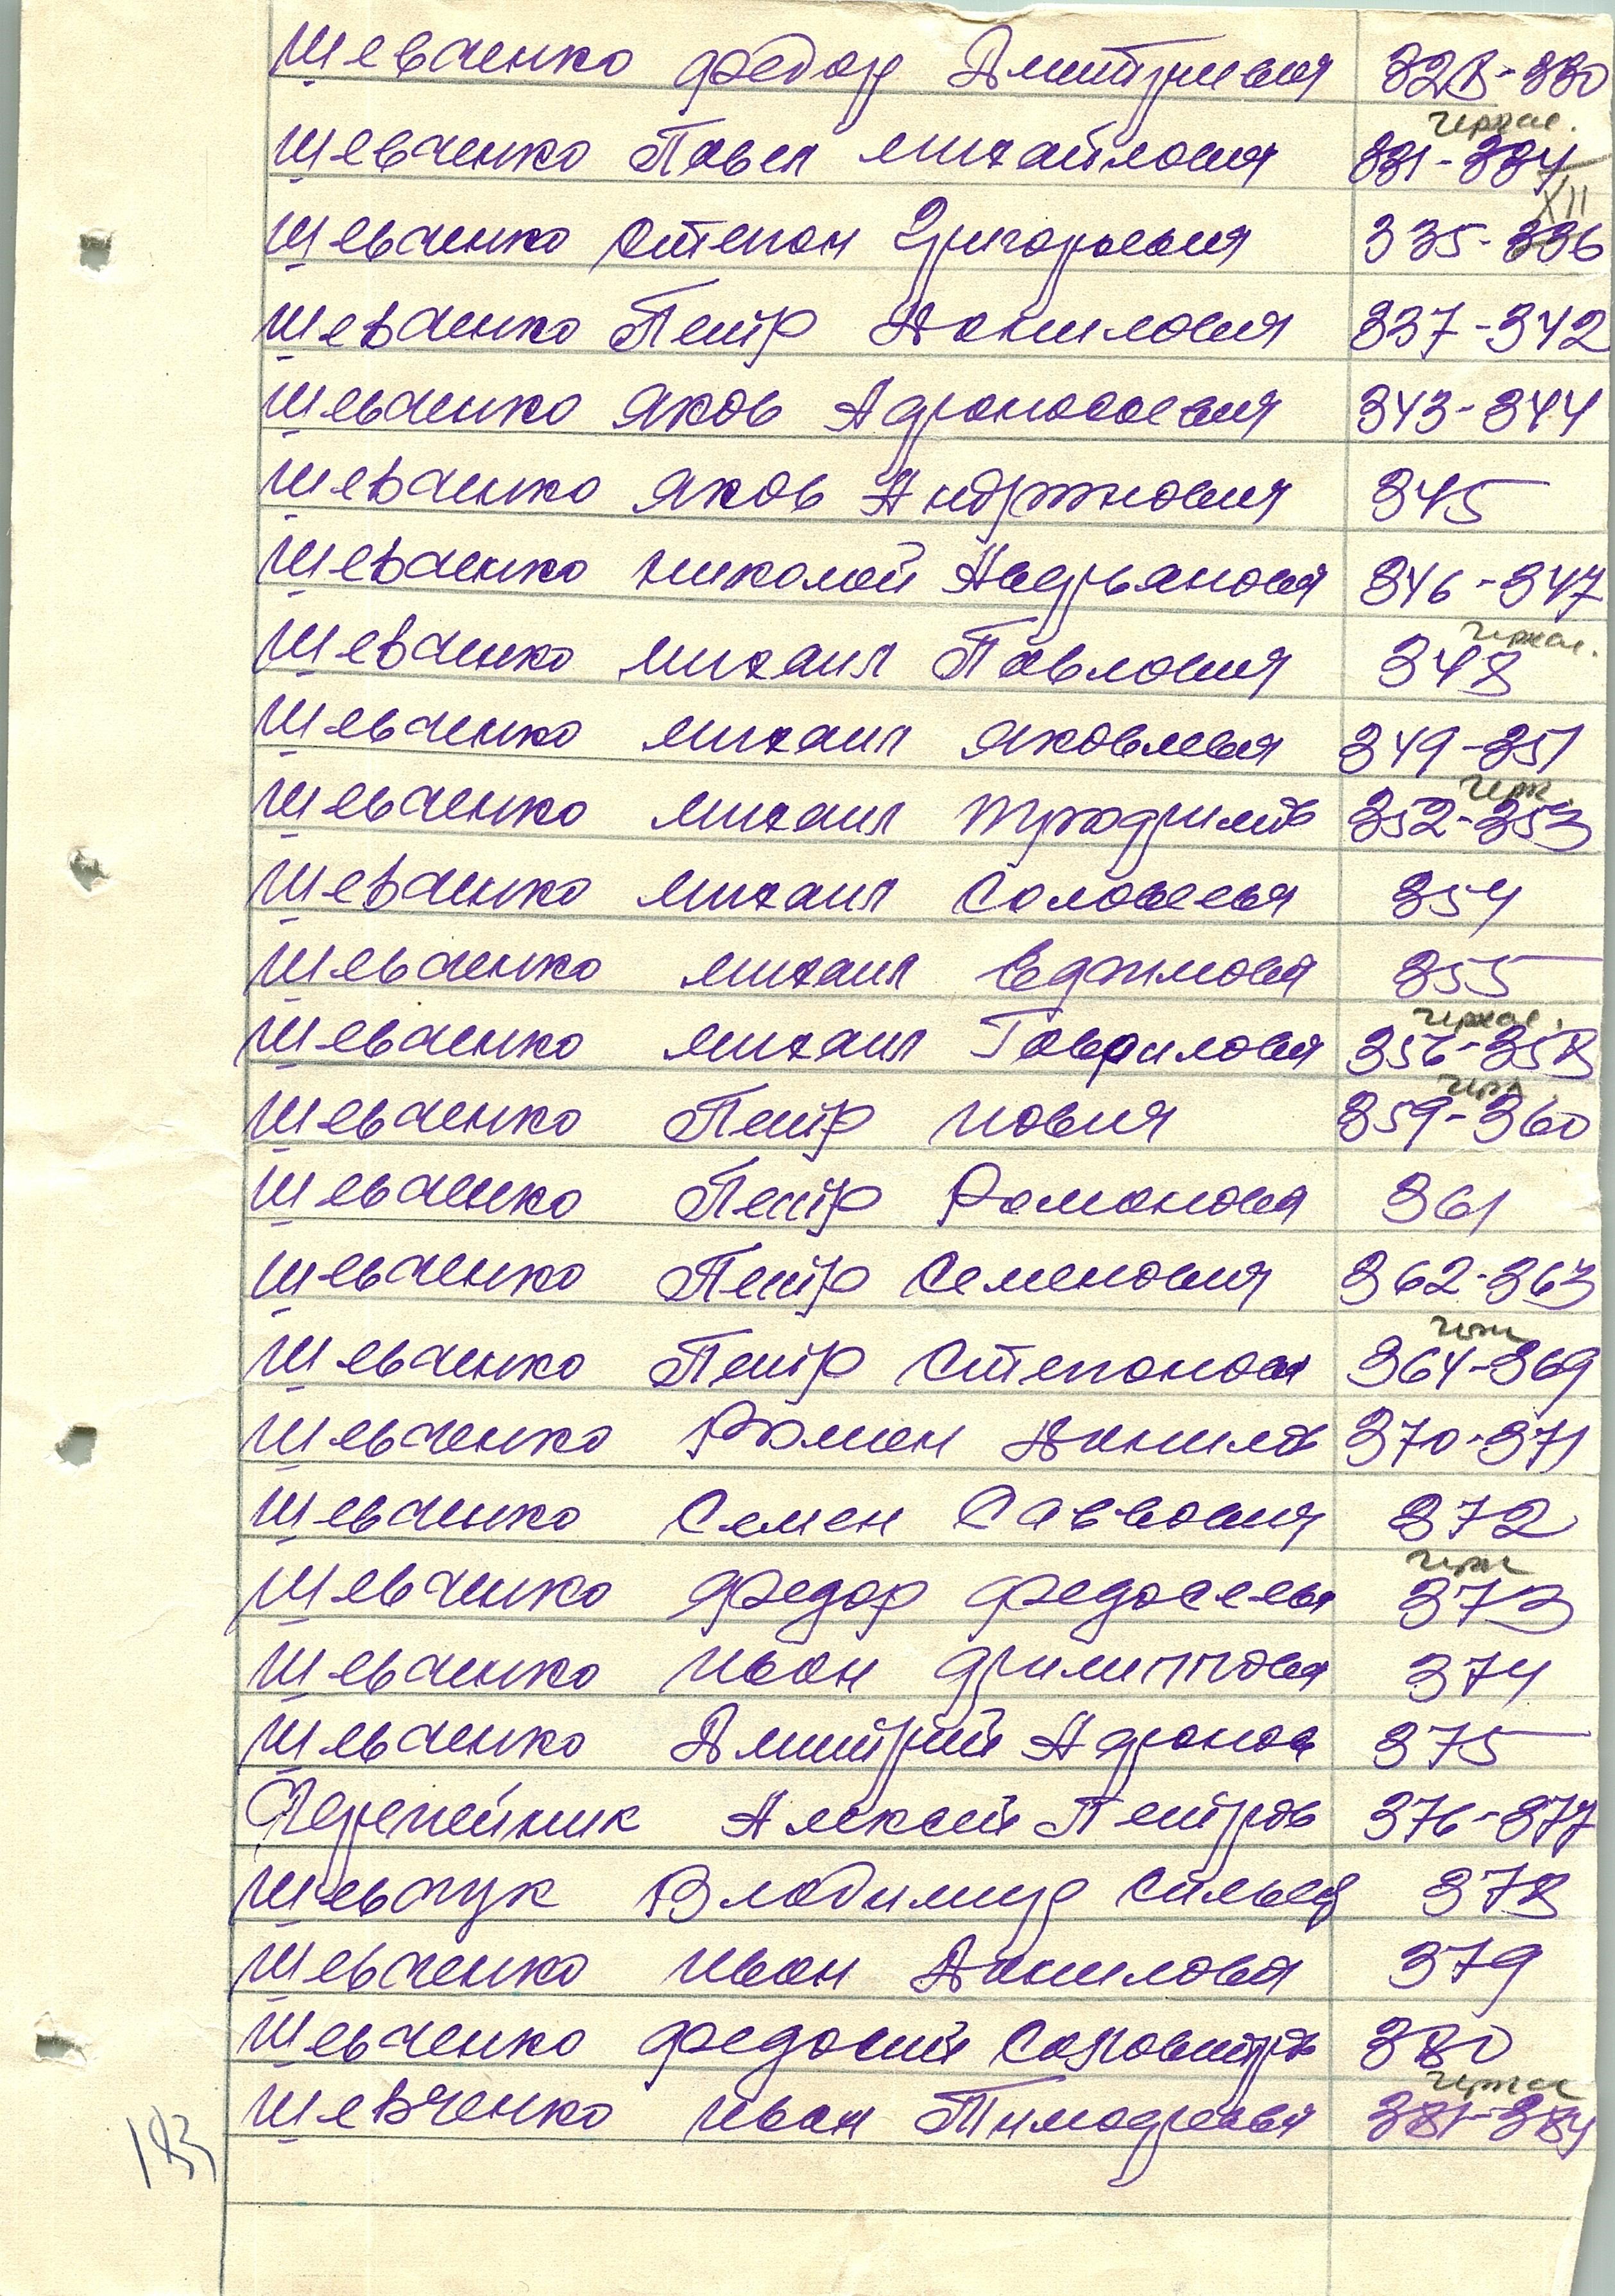 Шевченко Федор Дмитриевич 328-330
Черкас.
Шевченко Павел Михайлович 331-334
XII
Шевченко Степан Григорьевич 335-336
Шевченко Петр Данилович 337-342
Шевченко Яков Афанасьевич 343-344
Шевченко Яков Андронович 345
Шевченко Николай Андрьянович 346-347
Черкас.
Шевченко Михаил Павлович 348
Шевченко Михаил Яковлевич 349-351
Черк.
Шевченко Михаил 352-353
Шевченко Михаил Соловьевич 354
Шевченко Михаил Ефимович 355
Черкас.
Шевченко Михаил Гаврилович 356-358
Черк
Шевченко Петр 359-360
Шевченко Петр Романович 361
Шевченко Петр Семенович 362-363
Черк
Шевченко Петр Степанович 364-369
Шевченко Роман Данилов 370-371
Шевченко Семен Саввович 372
Черк
Шевченко Федор Федосеевич 373
Шевченко Иван Филиппович 374
Шевченко Дмитрий Афанас 375
Черепейник Алексей Петров 376-377
Шевчук Владимир 378
Шевченко Иван Данилович 379
Шевченко Федосий 380
Черкас
Шевченко Иван Тимофеевич 381-384
183